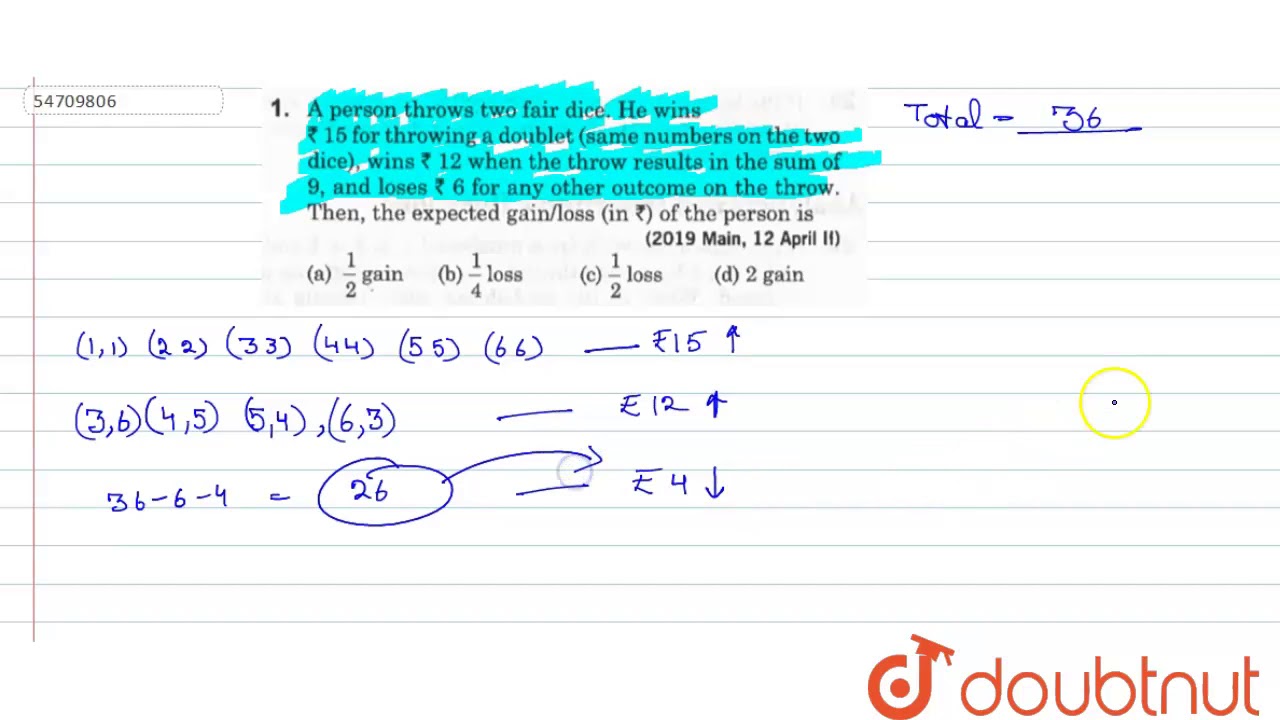 54709806
1. A person throws two fair dice. He wins
₹ 15 for throwing a doublet (same numbers on the two
dice), wins ₹ 12 when the throw results in the sum of
9, and loses ₹ 6 for any other outcome on the throw.
Then, the expected gain/loss (in ₹) of the person is
(2019 Main, 12 April II)
(a) 1/2 gain (b) 1/4 loss (c) 1/2 loss (d) 2 gain
Total = 36
(1,1) (2 2) (3 3) (4 4) (5 5) (6 6) — ₹15 ↑
(3,6) (4,5) (5,4) , (6,3) — ₹ 12 ↑
36-6-4 = 26 — ₹ 4 ↓
doubtnut